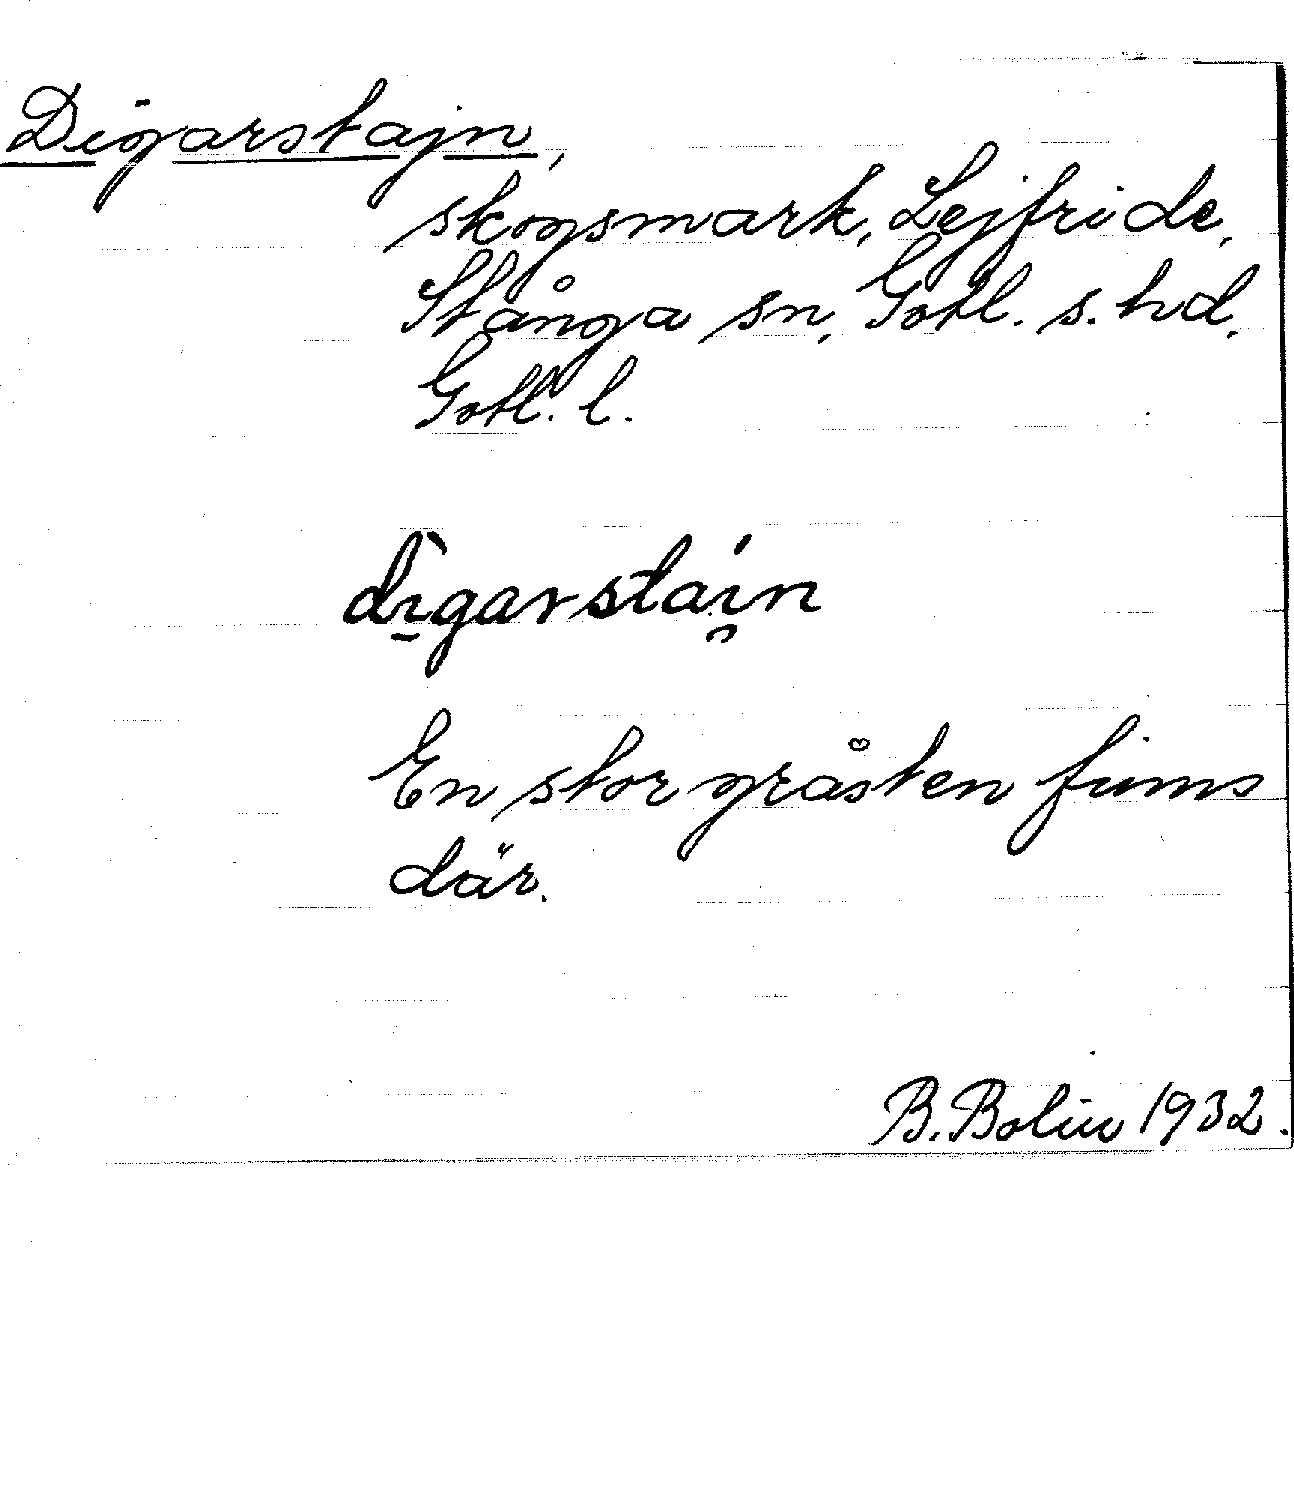 Digarstajn,
skogsmark, Lejfride,
Stånga sn, Gotl. s. hd,
Gotl. l.
dı̀garstaı́n
En stor gråsten finns
där.
B. Bolin 1932.